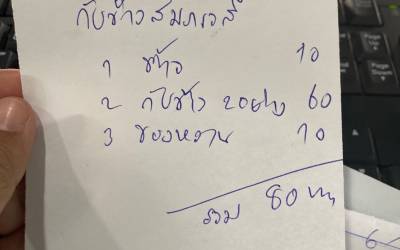 กับข้าวสัมภเวสี
1 ข้าว 10
2 กับข้าว 2อย่าง 60
3 ของหวาน 10
รวม 80 บาท
Page Up
Page Down